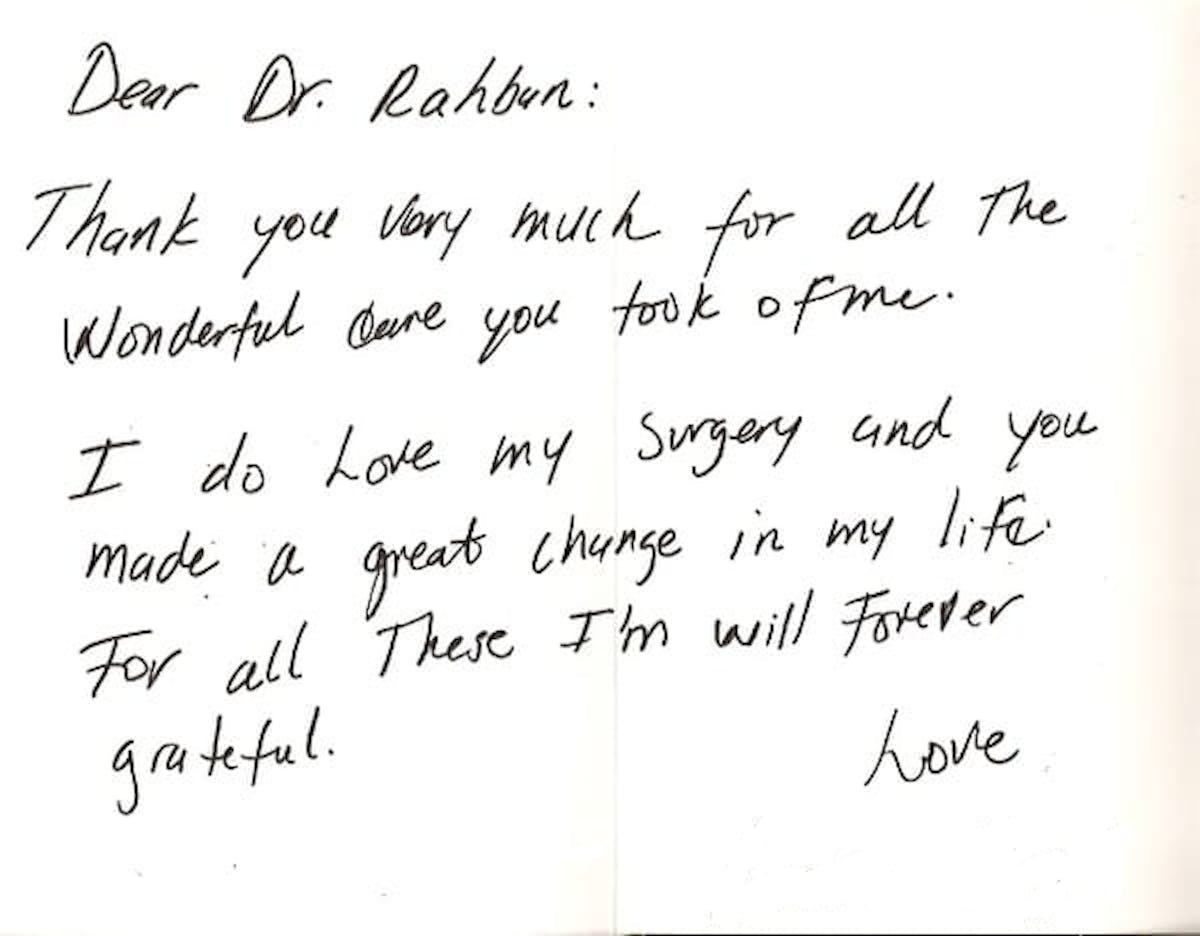 Dear Dr. Rahban:
Thank you very much for all the
Wonderful Care you took of me.
I do Love my Surgery and you
made a great change in my life.
For all These I'm will Forever
grateful.
Love